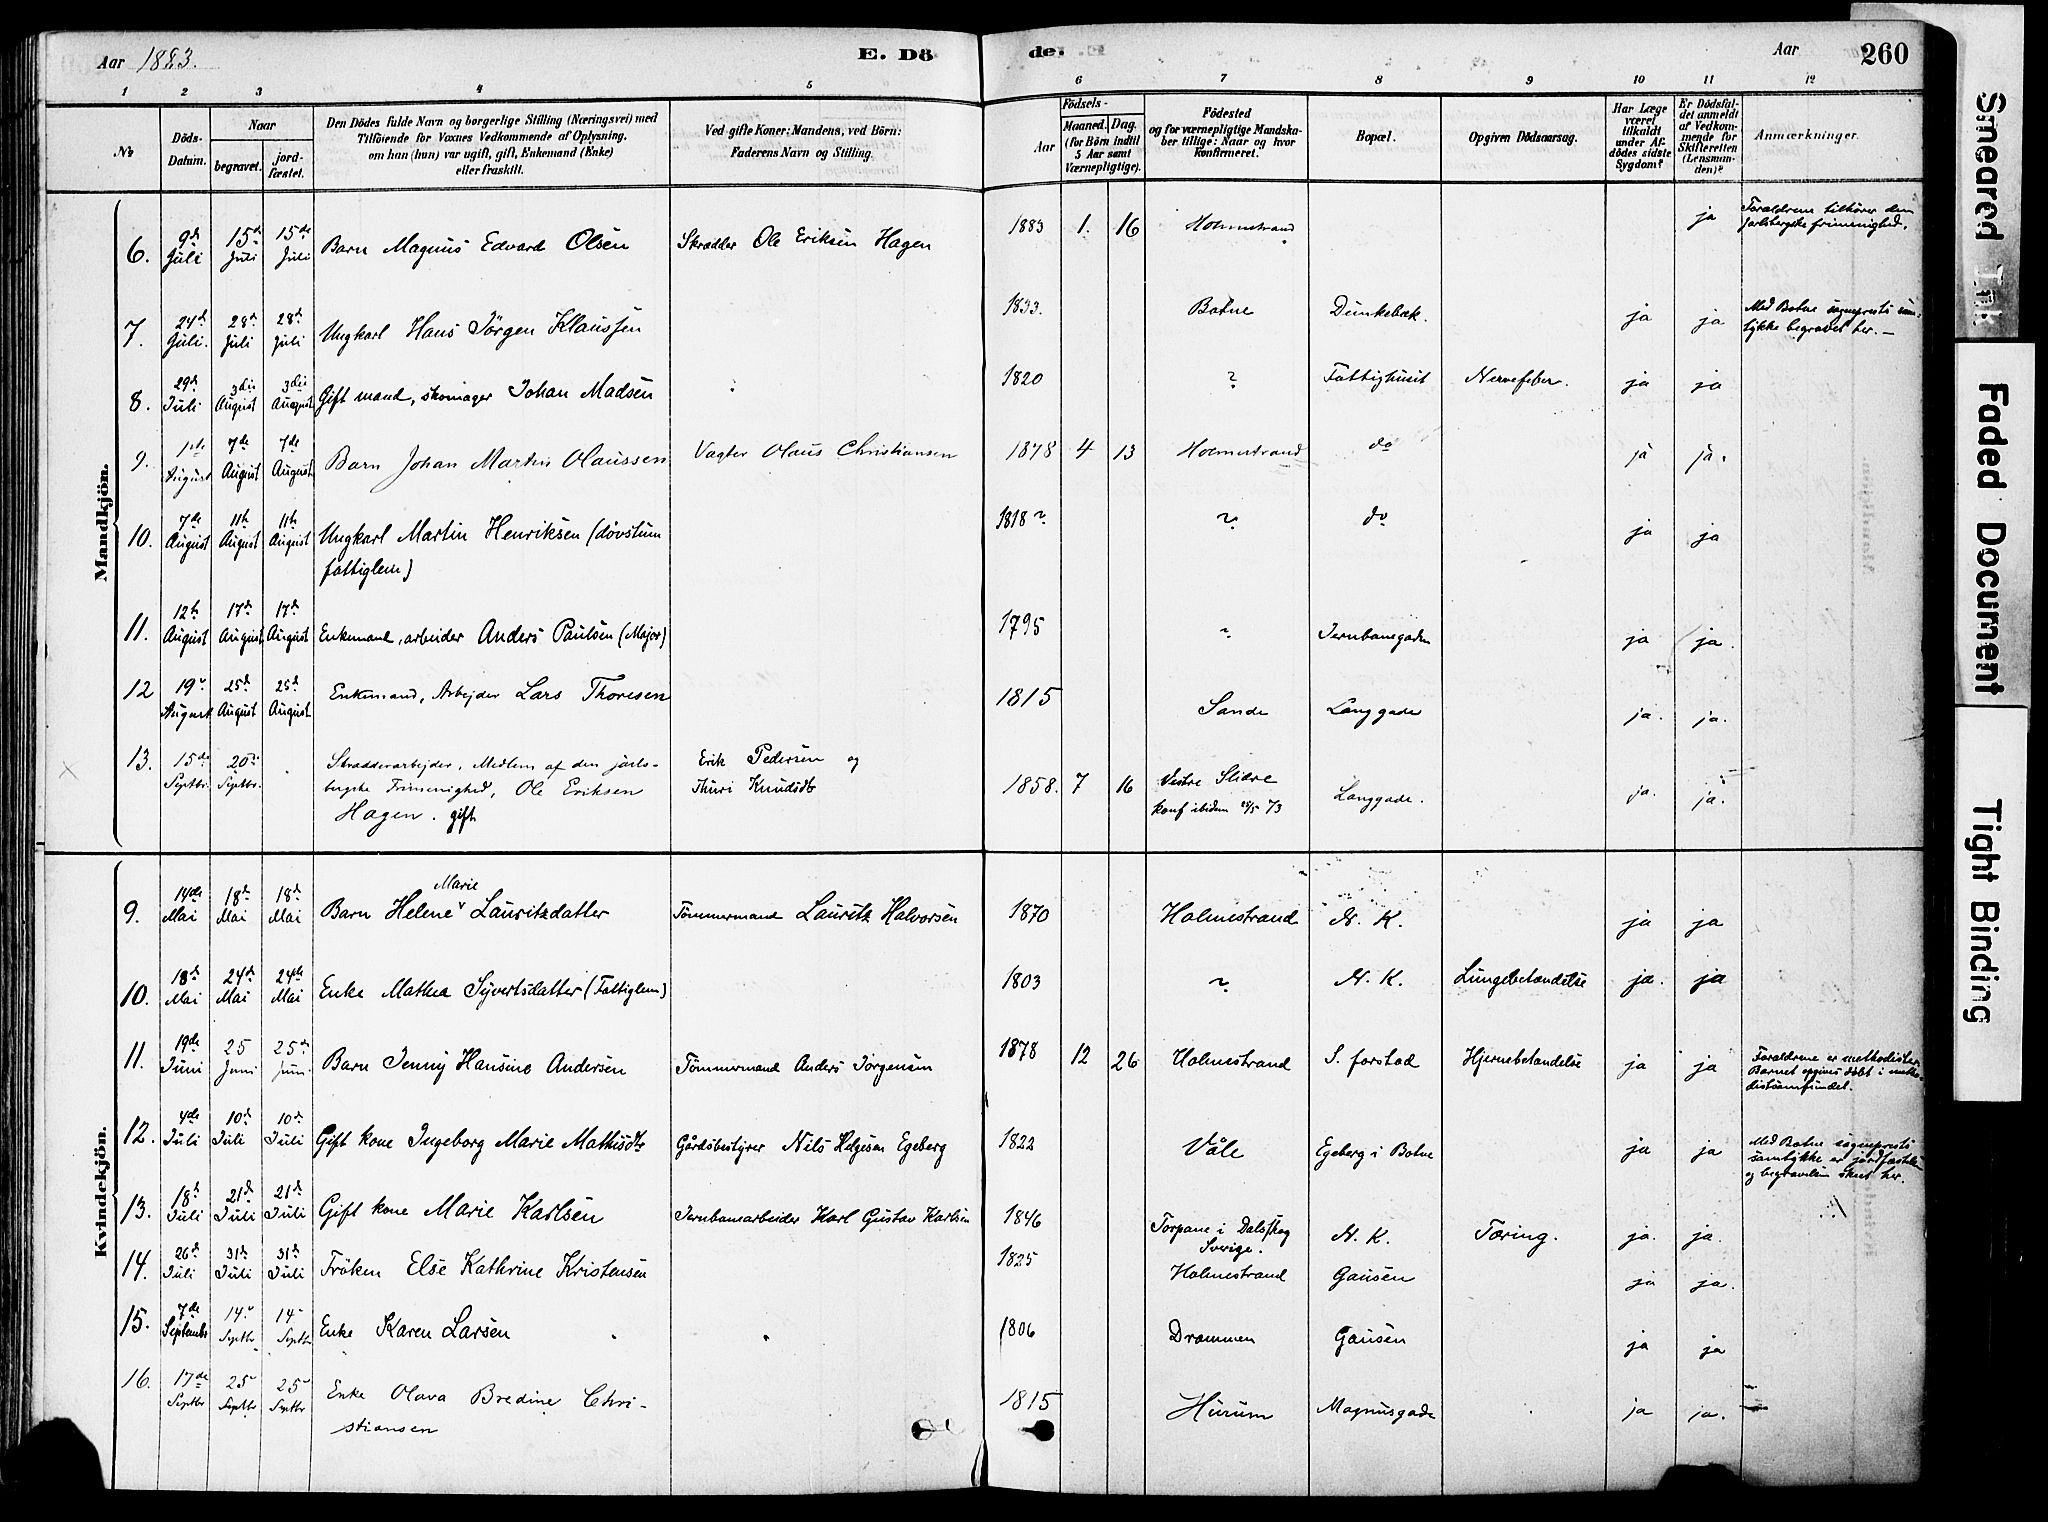 Aar 1883.
E. Dö
de.
Aar
260
1 2 3 4 5 6 7 8 9 10 11 12
No
Döds-Datum.
Naar
begravet.
jord-fæstet.
Den Dödes fulde Navn og borgerlige Stilling (Næringsvei) med
Tilföiende for Voxnes Vedkommende af Oplysning,
om han (hun) var ugift, gift, Enkemand (Enke)
eller fraskilt.
Ved gifte Koner: Mandens, ved Börn:
Faderens Navn og Stilling.
Födsels-
Aar
Maaned. Dag.
(for Börn indtil
5 Aar samt
Værnepligtige).
Födested
og for værnepligtige Mandska-
ber tillige: Naar og hvor
konfirmeret.
Bopæl.
Opgiven Dödsaarsag.
Har Læge
været
tilkaldt
under Af-
dödes sidste
Sygdom?
Er Dödsfal-
det anmeldt
af Vedkom-
mende for
Skifteretten
(Lensman-
den)?
Anmærkninger.
Mandkjön.
6. 9d Juli 15d Juli 15de Juli Barn Magnus Edvard Olsen Skrædder Ole Eriksen Hagen 1883 1. 16 Holmestrand ja Forældrene tilhører den
jarlsbergske frimenighed.
7. 24d Juli. 28d Juli 28d Juli Ungkarl Hans Jörgen Klaussen 1833. Botne Dunkebæk. ja ja Med Botne sogneprests sam-
tykke begravet her. —
8. 29d Juli 3die August 3die August Gift mand, skomager Johan Madsen 1820 ? Fattighuset Nervefeber. ja ja
9. 1ste August 7de August 7de August Barn Johan Martin Olaussen Vagter Olaus Christiansen 1878 4 13 Holmestrand do ja ja.
10. 7de August 11te August 11te August Ungkarl Martin Henriksen (døvstum
fattiglem) 1818? ? do ja ja
11. 12te August 17d August 17d August Enkemand, arbeider Anders Paulsen (Major) 1795 ? Jernbanegaden ja ja.
12 19de August 25d August 25d August Enkemand, Arbejder Lars Thoresen 1815 Sande Langgade ja. ja.
13. 15de Septbr. 20de Septbr. Skrædderarbejder, Medlem af den jarls-
bergske Frimenighed, Ole Eriksen
Hagen. gift
Erik Pedersen og
Thuri Knudsdtr
1858. 7 16 Vestre Slidre
konf ibidem 25/5 73 Langgade. ja. ja.
Kvindekjön.
9. 14de Mai 18d Mai 18d Mai Barn Helene Marie Lauritzdatter Tömmermand Lauritz Halvorsen 1870 Holmestrand N. K. ja ja
10. 18d Mai 24d Mai 24de Mai Enke Mathea Syvertsdatter (Fattiglem) 1803 ? N. K. Lungebetændelse ja. ja
11. 19de Juni 25 Juni 25de Juni Barn Jenny Hansine Andersen Tömmermand Anders Jörgensen 1878 12 26 Holmestrand S. forstad Hjernebetændelse ja ja Forældrene er methodister
Barnet opgives döbt i metho-
distsamfundet.
12. 4de Juli 10d Juli 10d Juli Gift kone Ingeborg Marie Mathisdtr Gårdsbestyrer Nils Helgesen Egeberg 1822 Våle Egeberg i Botne ja ja Med Botne sogneprests
samtykke er jordfæstelse
og begravelsen skeet her.
13. 18d Juli 21d Juli 21d Juli Gift kone Marie Karlsen Jernbanearbeider Karl Gustav Karlsen 1846 Torpane i Dalsskog
Sverige. N. K. Tæring. ja. ja.
14. 26d Juli 31d Juli 31d Juli Fröken Else Kathrine Kristensen 1825 Holmestrand Gausen ja ja.
15. 7de September 14d Septbr 14 Septbr Enke Karen Larsen 1806 Drammen Gausen ja ja
16. 17de Septbr 25 Septbr 25 Septbr Enke Olava Bredine Chri-
stiansen 1815 Hurum Magnusgade ja ja.
Smeared Ink
Faded Document
Tight Binding